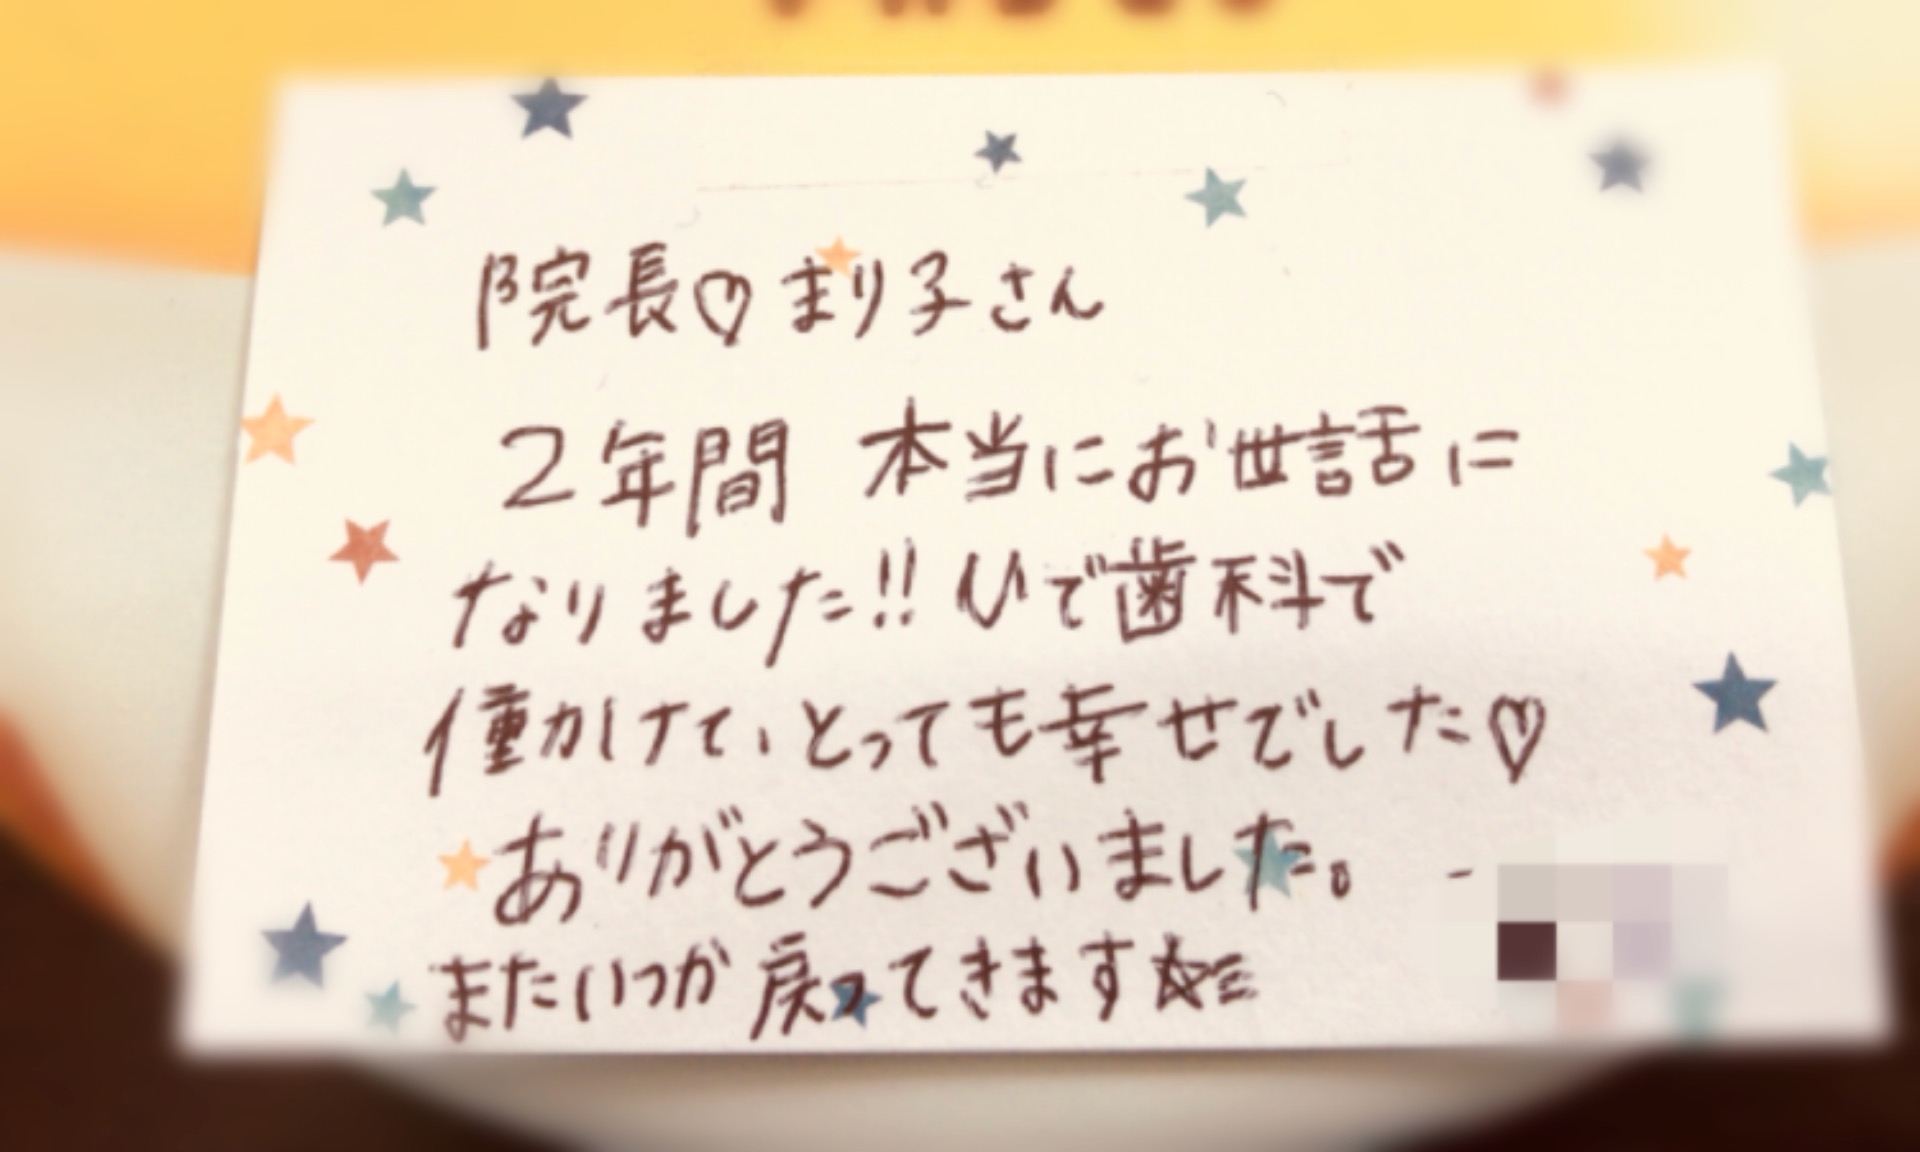 院長♡まり子さん
2年間 本当にお世話に
なりました!! ひで歯科で
働けて、とっても幸せでした♡
ありがとうございました。
またいつか戻ってきます☆彡